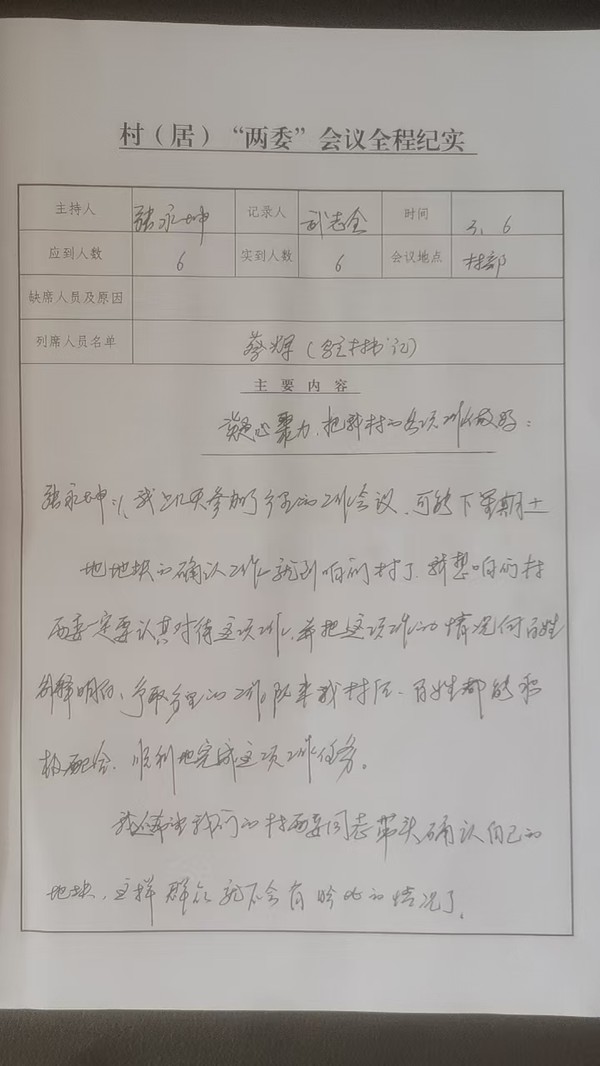 村（居）“两委”会议全程纪实
主持人 张永坤 记录人 武志全 时间 3、6
应到人数 6 实到人数 6 会议地点 村部
缺席人员及原因
列席人员名单 蔡辉（驻村书记）
主要内容
凝心聚力、把我村的各项工作做好：
张永坤：我上几天参加了乡里的工作会议、可能下星期土
地地块的确认工作就到咱们村了、我想咱们村
两委一定要认真对待这项工作、并把这项工作的情况向百姓
解释明白、争取乡里的工作队来我村后、百姓都能积
极配合、顺利地完成这项工作任务。
我还希望我们的村两委同志带头确认自己的
地块、这样群众就不会有的情况了。